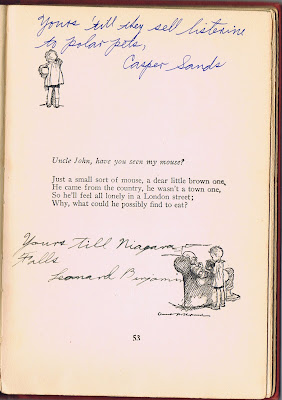 Yours 'till they sell listerine
to polar pets,
Casper Sands
Uncle John, have you seen my mouse?
Just a small sort of mouse, a dear little brown one,
He came from the country, he wasn't a town one,
So he'll feel all lonely in a London street;
Why, what could he possibly find to eat?
Yours till Niagara
Falls
Leonard Benjamin
53